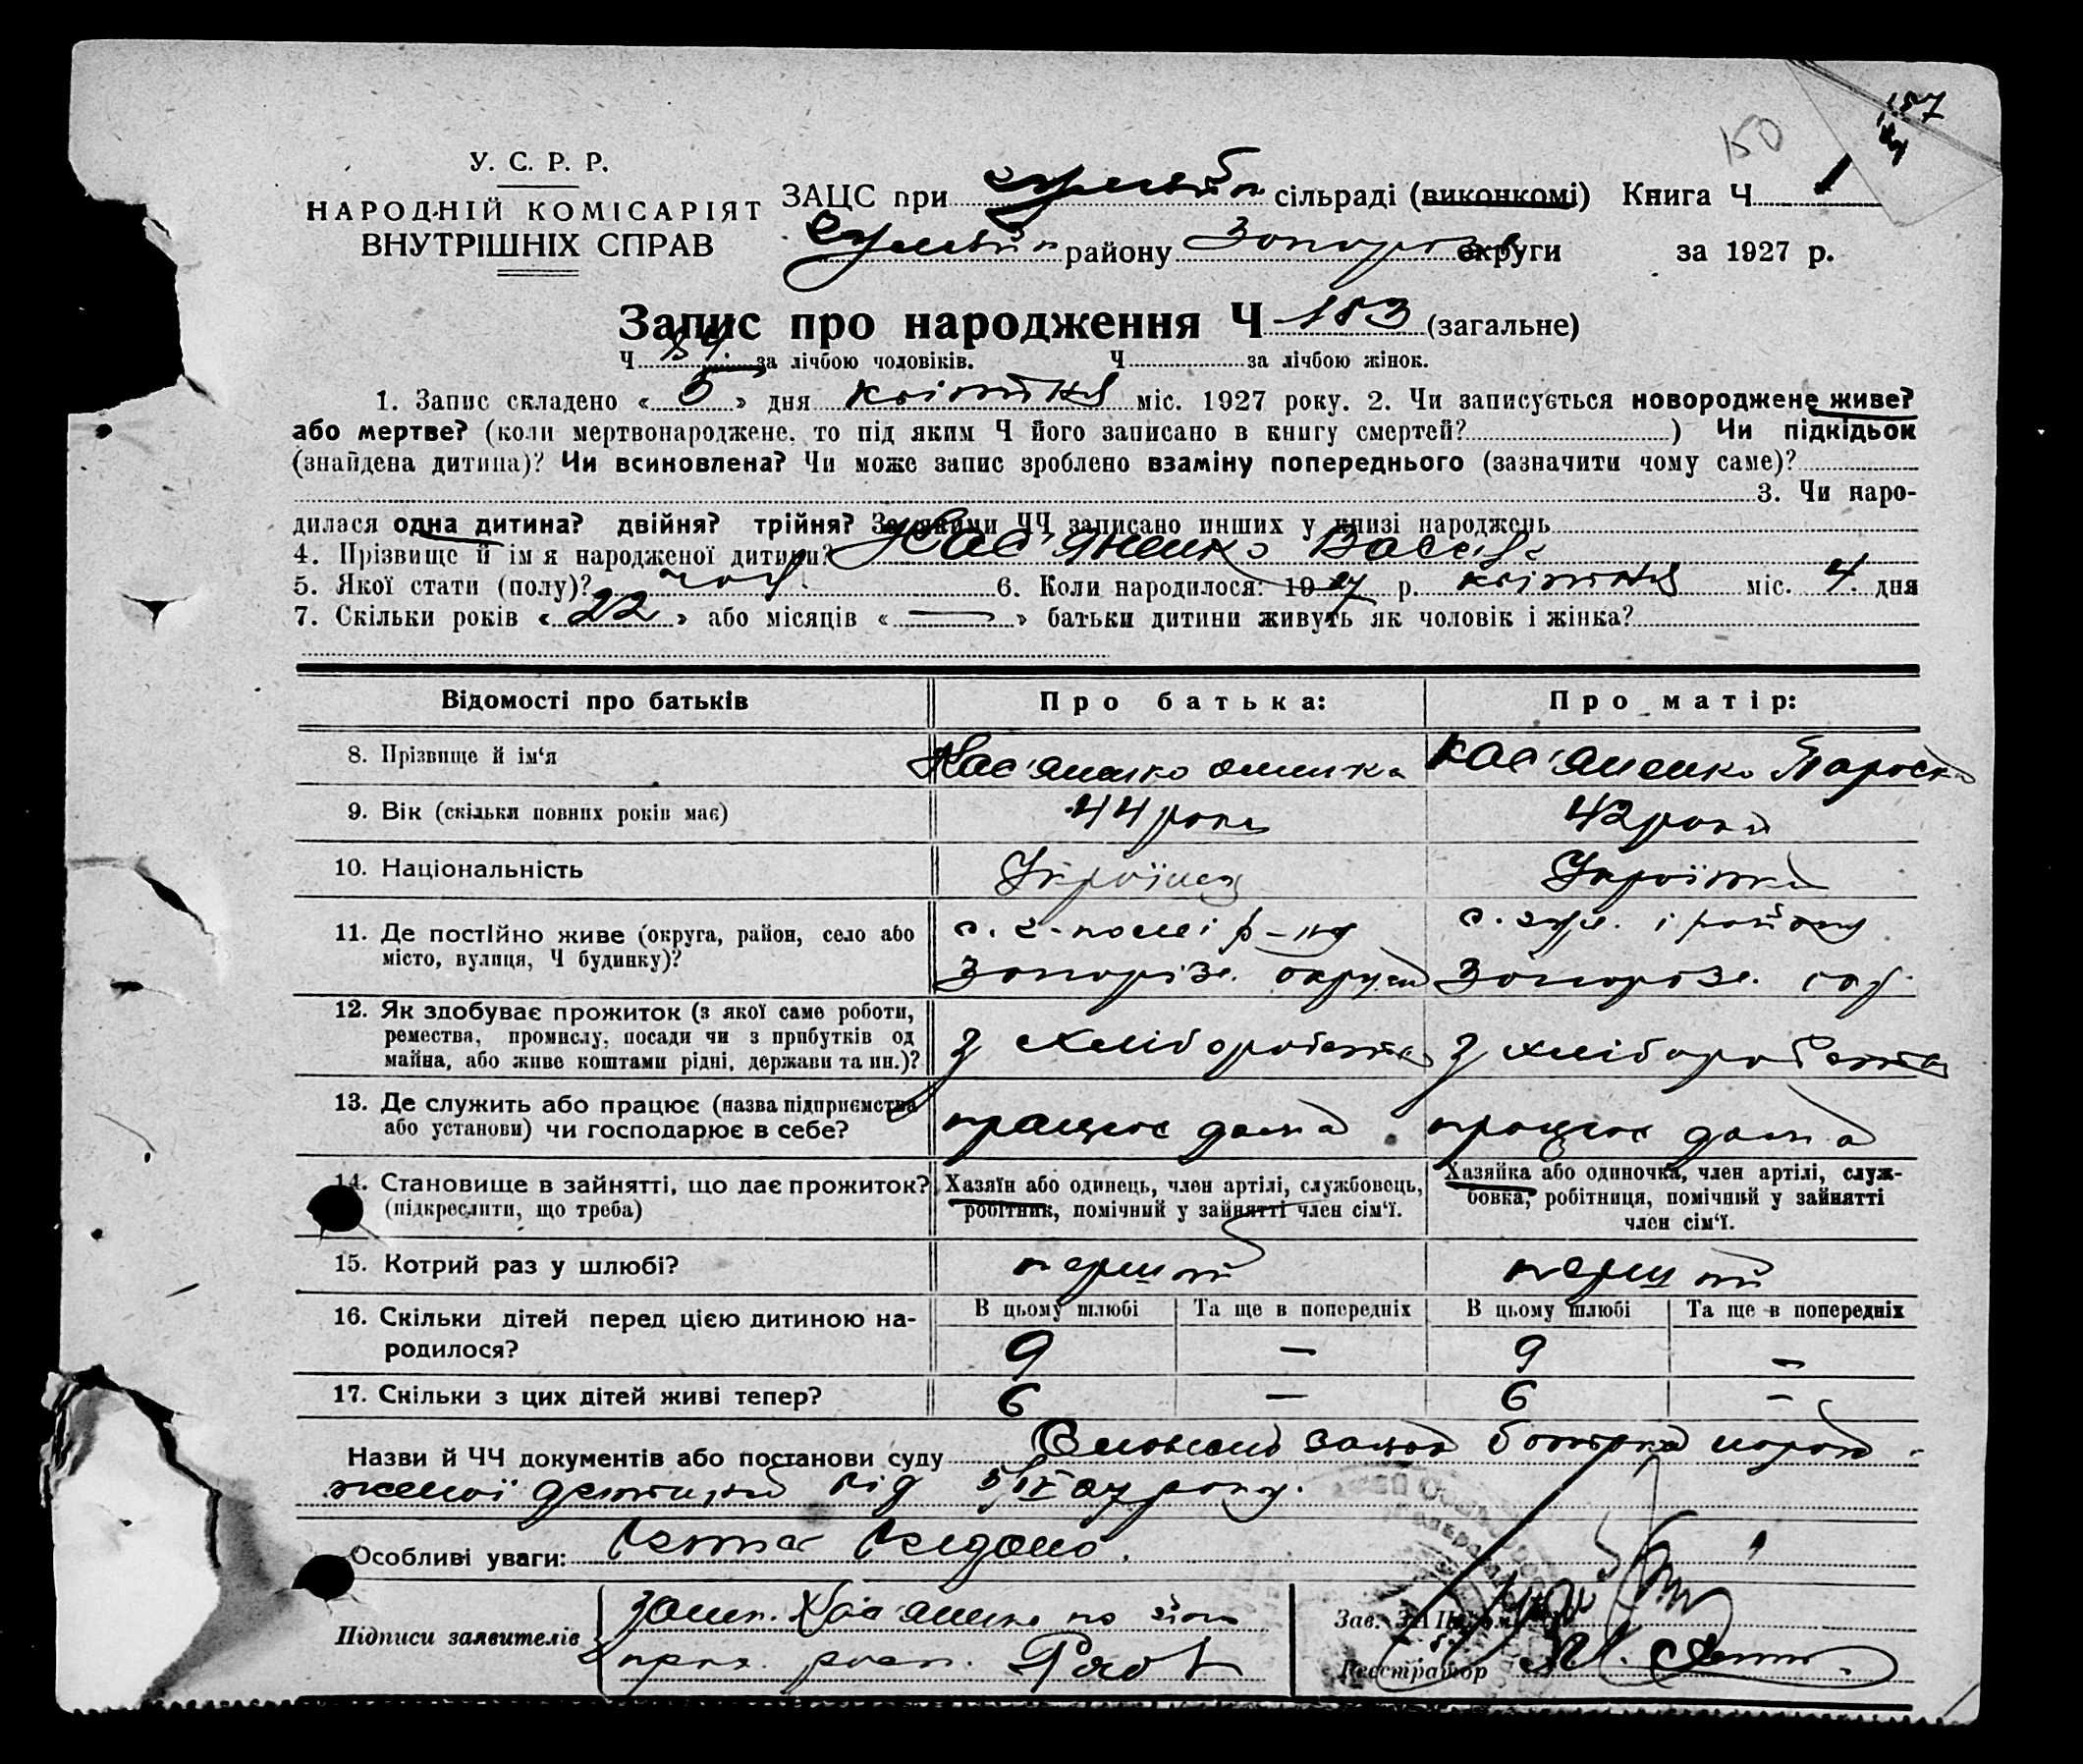 157
150
У. С. Р. Р.
НАРОДНІЙ КОМІСАРІЯТ
ВНУТРІШНІХ СПРАВ
ЗАЦС при сільраді (виконкомі) Книга Ч. 1
району Запоріз округи за 1927 р.
Запис про народження Ч 183 (загальне)
Ч 84. за лічбою чоловіків. Ч за лічбою жінок.
1. Запис складено « 5 » дня квітня міс. 1927 року. 2. Чи записується новороджене живе?
або мертве? (коли мертвонароджене, то під яким Ч його записано в книгу смертей? ) Чи підкідьок
(знайдена дитина)? Чи всиновлена? Чи може запис зроблено взаміну попереднього (зазначити чому саме)?
3. Чи наро-
дилася одна дитина? двійня? трійня? За якими ЧЧ записано инших у книзі народжень
4. Прізвище й ім я народженої дитини? Кас'яненко Васив
5. Якої стати (полу)? чол. 6. Коли народилося: 1927 р. квітня міс. 4. дня
7. Скільки років « 22 » або місяців « — » батьки дитини живуть як чоловік і жінка?
Відомості про батьків Про батька: Про матір:
8. Прізвище й ім'я Кас'яненко Кас'яненко Параска
9. Вік (скільки повних років має) 44 роки 42 роки
10. Національність Українец Українка
11. Де постійно живе (округа, район, село або
місто, вулиця, Ч будинку)?
с. р-ну с. і району
Запоріз. округи Запороз. окр.
12. Як здобуває прожиток (з якої саме роботи,
ремества, промислу, посади чи з прибутків од
майна, або живе коштами рідні, держави та ин.)?
З хліборобства З хліборобства
13. Де служить або працює (назва підприємства
або установи) чи господарює в себе?
працює дома працює дома
14. Становище в зайнятті, що дає прожиток?
(підкреслити, що треба)
Хазяїн або одинець, член артілі, службовець,
робітник, помічний у зайнятті член сім'ї.
Хазяйка або одиночка, член артілі, служ-
бовка, робітниця, помічний у зайнятті
член сім'ї.
15. Котрий раз у шлюбі? перший перший
16. Скільки дітей перед цією дитиною на-
родилося?
В цьому шлюбі Та ще в попередніх В цьому шлюбі Та ще в попередніх
9 — 9 —
17. Скільки з цих дітей живі тепер? 6 — 6 —
Назви й ЧЧ документів або постанови суду Словесна заява батька народ
женої дитини від 5/IV 27 року.
Особливі уваги: видано.
Підписи заявителів Кас'яненко по його
прох. розп.
Зав. ЗАЦСом
Реєстратор